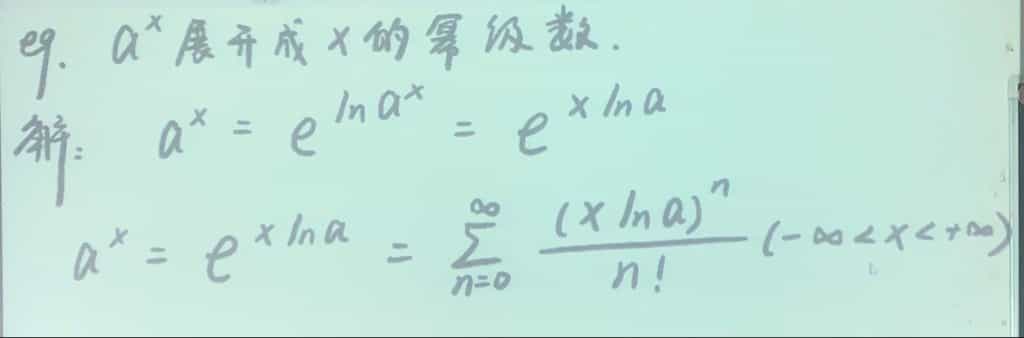 eg. a^x 展开成 x 的幂级数.
解: a^x = e^{ln a^x} = e^{x ln a}
a^x = e^{x ln a} = \sum_{n=0}^{\infty} \frac{(x ln a)^n}{n!} (-∞ < x < +∞)